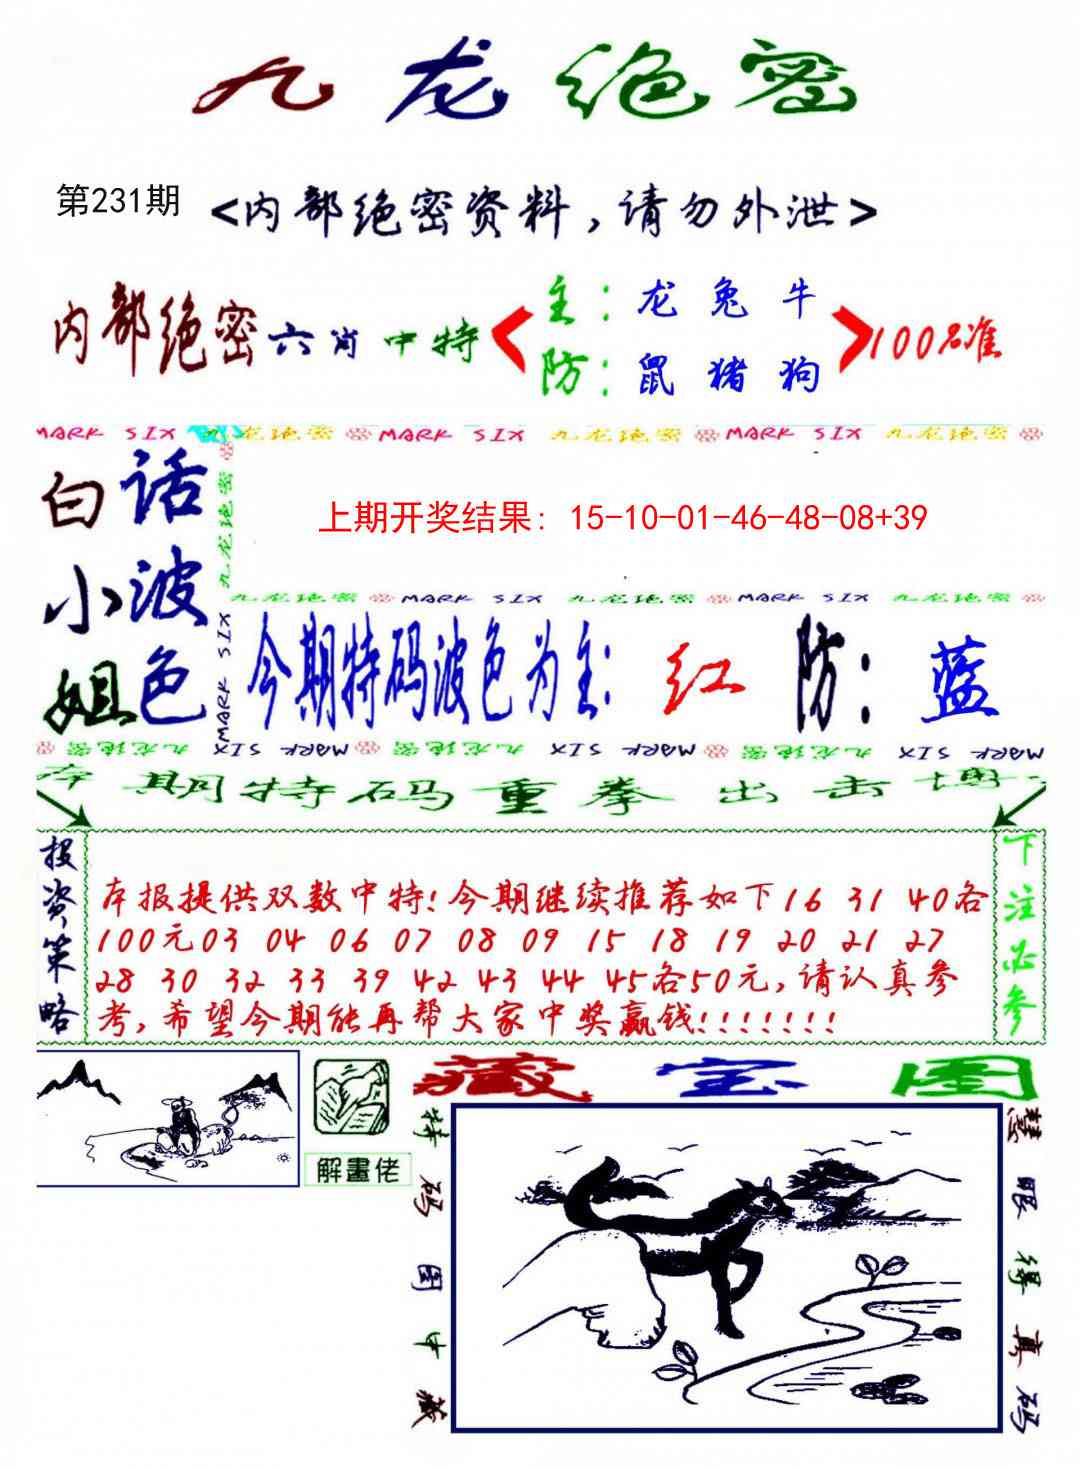 九龙绝密
第231期
<内部绝密资料,请勿外泄>
内部绝密六肖中特
主:龙 兔 牛
防:鼠 猪 狗
100%准
MARK SIX 九龙绝密 MARK SIX 九龙绝密 MARK SIX 九龙绝密
白小姐
话波色
九龙绝密
MARK SIX
上期开奖结果: 15-10-01-46-48-08+39
九龙绝密 MARK SIX 九龙绝密 MARK SIX 九龙绝密
今期特码波色为主:红 防:蓝
九龙绝密 MARK SIX 九龙绝密 MARK SIX 九龙绝密 MARK SIX
本期特码重拳出击博
投资策略
本报提供双数中特!今期继续推荐如下16 31 40各
100元03 04 06 07 08 09 15 18 19 20 21 27
28 30 32 33 39 42 43 44 45各50元,请认真参
考,希望今期能再帮大家中奖赢钱!!!!!!!
下注必参
解畫佬
藏宝图
特码图中藏
慧眼得真码